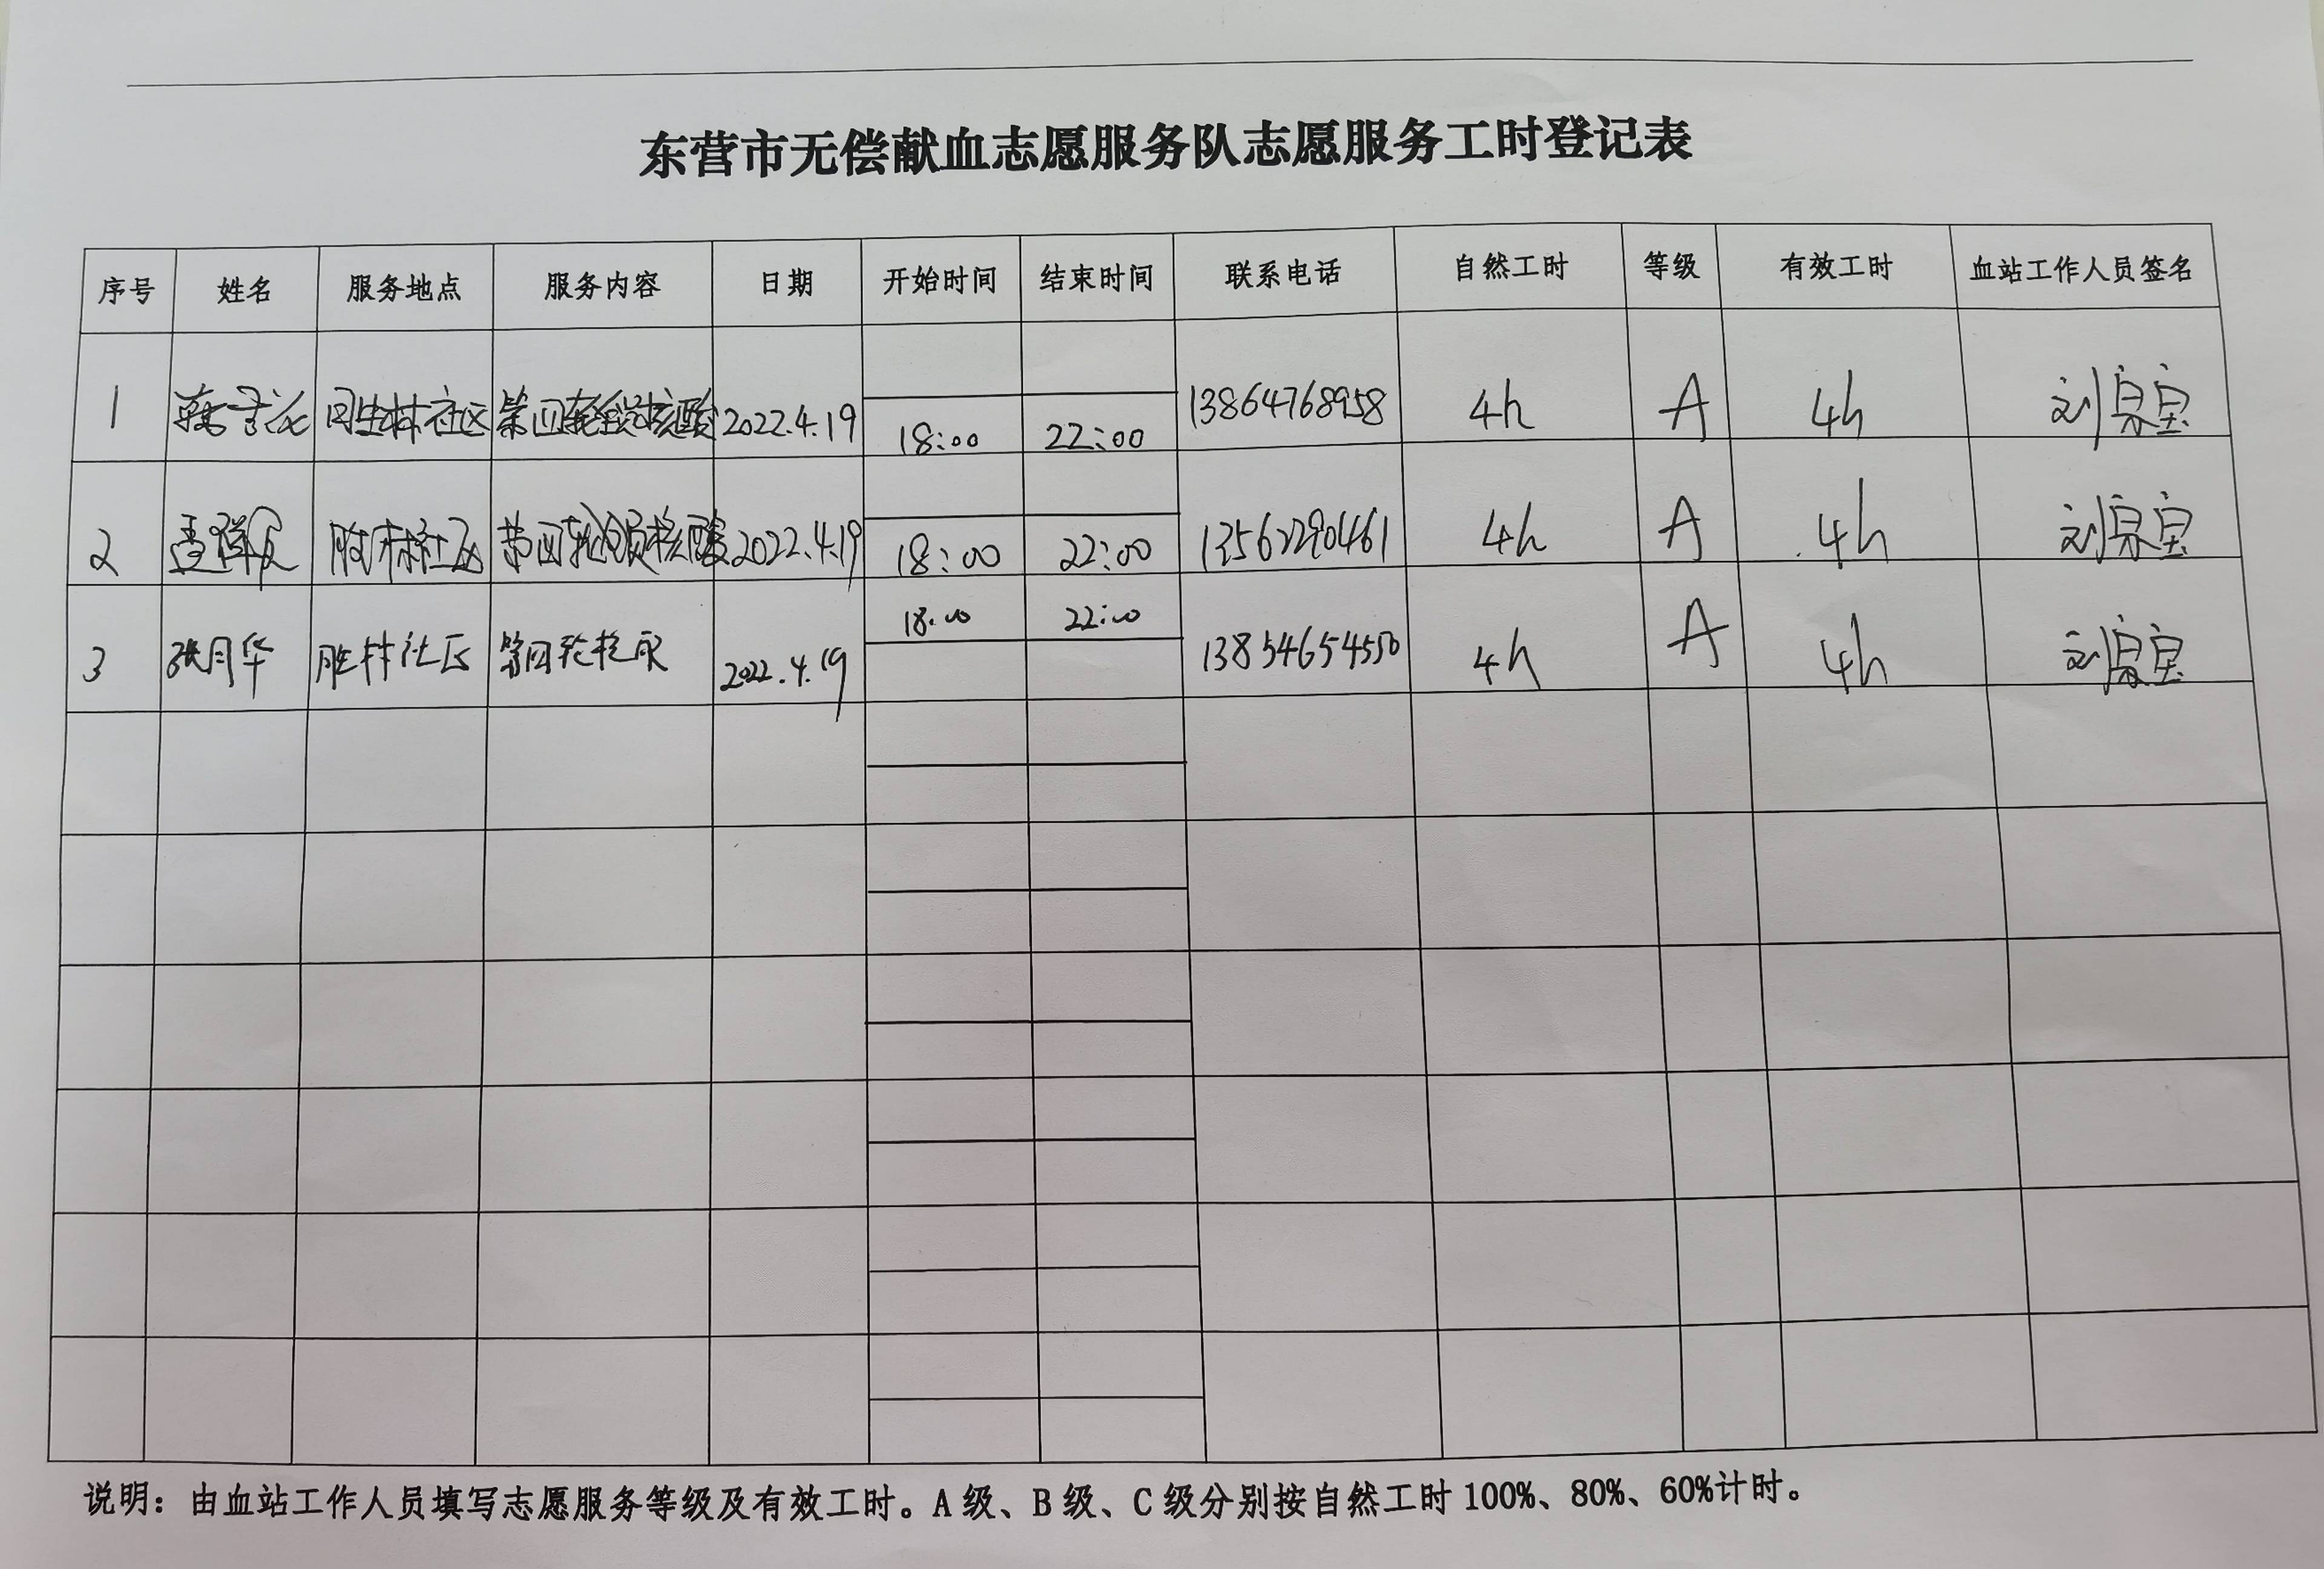 东营市无偿献血志愿服务队志愿服务工时登记表
序号 姓名 服务地点 服务内容 日期 开始时间 结束时间 联系电话 自然工时 等级 有效工时 血站工作人员签名
1 社区 第四轮全员核酸 2022.4.19 18:00 22:00 13864768958 4h A 4h 刘泉宝
2 胜林社区 第四轮全员核酸 2022.4.19 18:00 22:00 13562290461 4h A 4h 刘泉宝
3 张月华 胜林社区 第四轮核酸 2022.4.19 18:00 22:00 13854654550 4h A 4h 刘泉宝
说明：由血站工作人员填写志愿服务等级及有效工时。A级、B级、C级分别按自然工时100%、80%、60%计时。